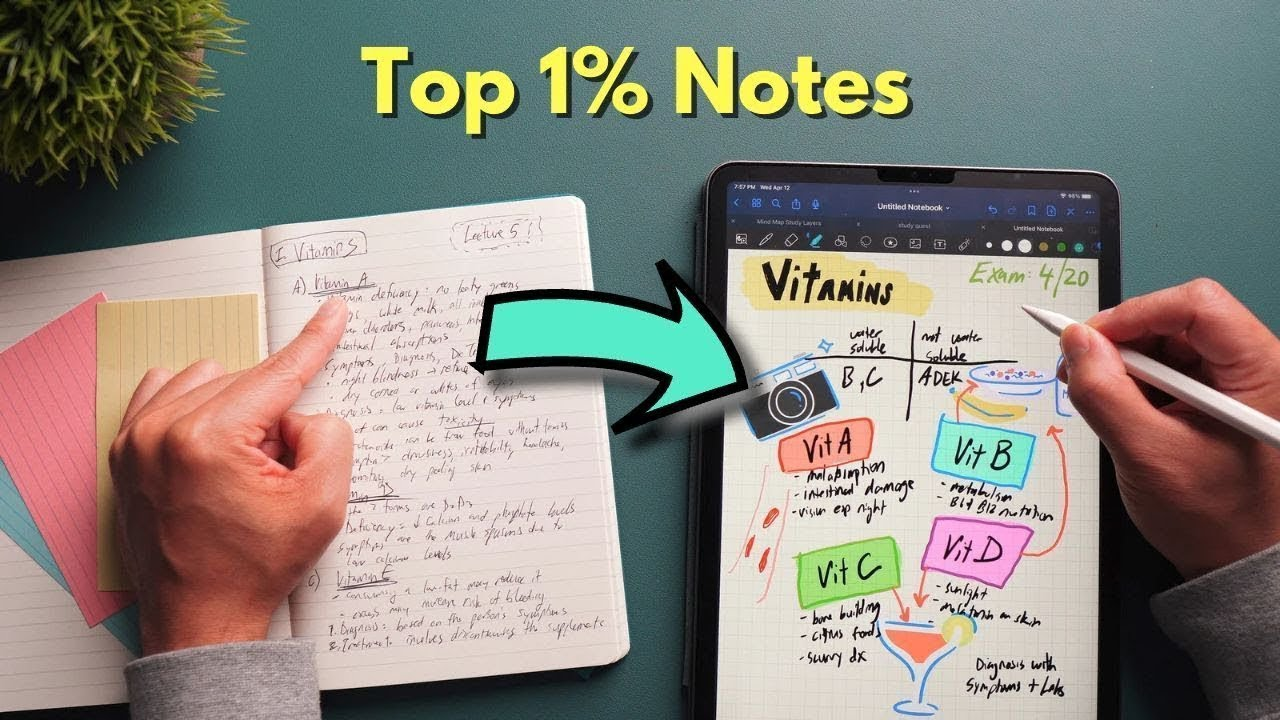 Top 1% Notes
I Vitamins
Lecture 5
A) Vitamin A
deficiency: no leafy greens
white milk, all
disorders, pancreas,
intestinal absorptions
Symptoms, Diagnosis,
night blindness →
dry cornea or
low vitamin level + symptoms
can cause toxicity
can be from food without toxins
drowsiness, irritability, headache,
dry peeling skin
2 forms are
Deficiency: ↓ calcium and phosphate levels
symptoms are the muscle spasms due to
low calcium levels
C) Vitamin E
- consuming a low-fat may reduce it
- excess may increase risk of bleeding
1. Diagnosis: based on the person's symptoms
2. Treatment: involves discontinuing the supplements
7:57 PM Wed Apr 12
98%
Untitled Notebook
Mind Map Study Layers
study quest
Untitled Notebook
Vitamins
Exam: 4/20
water soluble
not water soluble
B, C
ADEK
Vit A
- malabsorption
- intestinal damage
- vision esp night
Vit B
- metabolism
- B6 + B12 nutrition
Vit C
- bone building
- citrus foods
- scurvy dx
Vit D
- sunlight
- melatonin on skin
Diagnosis with
Symptoms + Labs